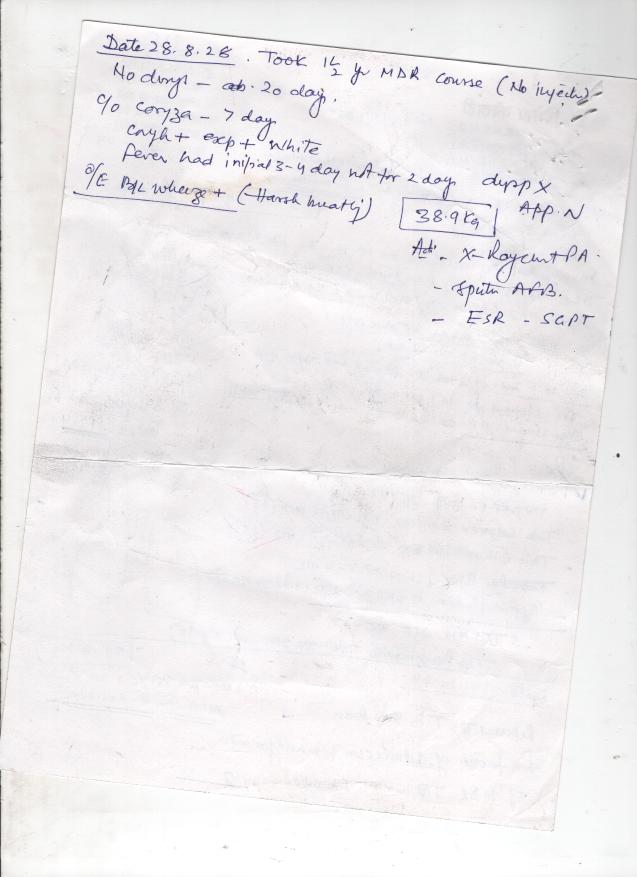 Date 28.8.28. Took 1½ yr MDR course (No injectn)
No drugs - ab. 20 day.
c/o coryza - 7 day
Cough + exp + white
fever had initial 3-4 day not for 2 day dysp X
APP. N
O/E B/L wheeze + (-Harsh breathg)
38.9 Kg
Adv. - X-Ray PA.
- Sputu AFB.
- ESR - SGPT